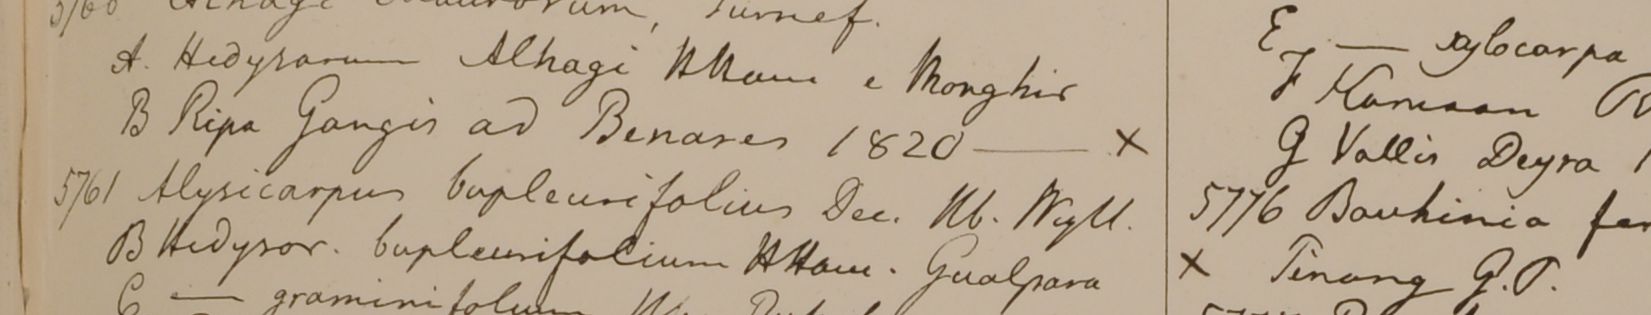 5760 Alhagi Maurorum, Turnef.
A. Hedysarum Alhagi HHam e Monghir
B Ripa Gangis ad Benares 1820 — ×
5761 Alysicarpus bupleurifolius Dec. Hb. Wight.
B Hedysar. bupleurifolium HHam. Gualpara
C — graminifolium
E — xylocarpa
F Kamaon
G Vallis Deyra
5776 Bauhinia
× Pinang G.P.